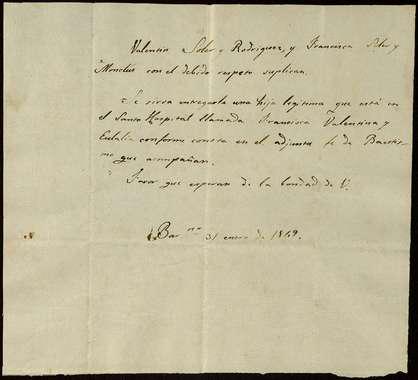 Valentin Soler y Rodriguez, y Francisca Soler y
Monclus con el debido respeto suplican.
Se sirva entregarle una hija legitima que está en
el Santo Hospital llamada Francisca Valentina y
Eulalia conforme consta en el adjunto fe de Bautis-
mo que acompañan.
Favor que esperan de la bondad de V.
Bar.na 31 enero de 1849.